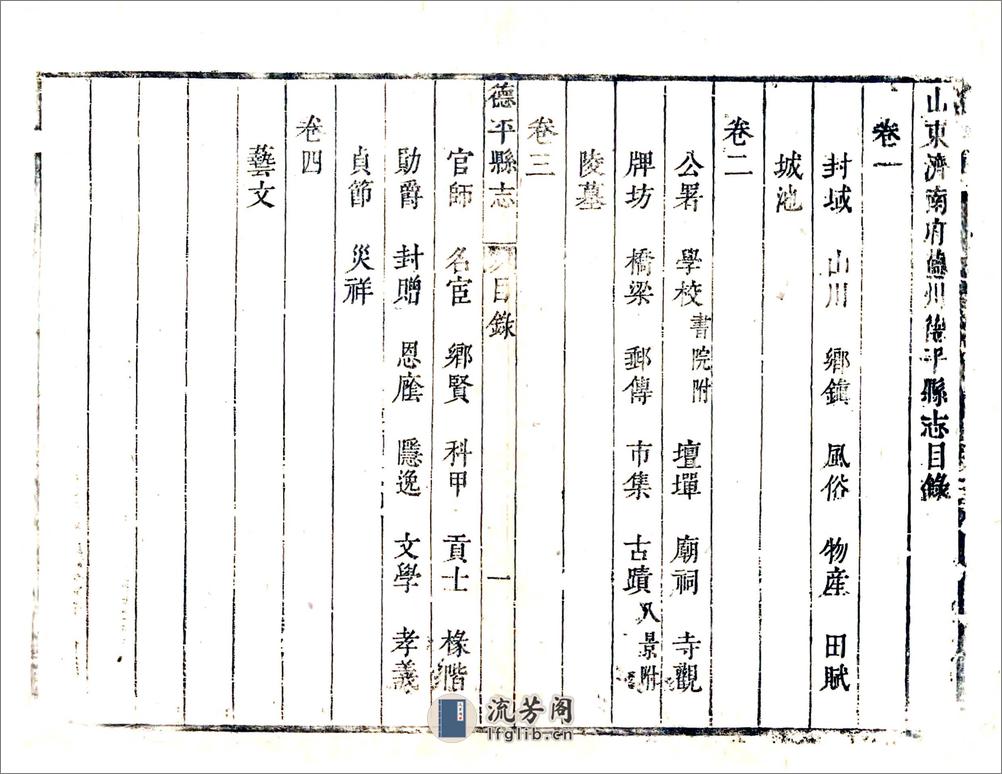 山東濟南府德州德平縣志目錄
卷一
封域 山川 鄉鎮 風俗 物産 田賦
城池
卷二
公署 學校 書院附 壇墠 廟祠 寺觀
牌坊 橋梁 郵傳 市集 古蹟 八景附
陵墓
卷三
德平縣志 目錄 一
官師 名宦 鄉賢 科甲 貢士 椽階
勛爵 封贈 恩廕 隱逸 文學 孝義
貞節 災祥
卷四
藝文
流芳阁
lfglib.cn